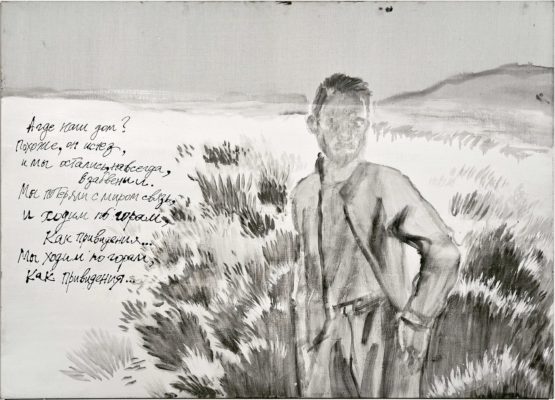 А где наш дом?
Похоже, он исчез,
и мы остались навсегда,
в забвении.
Мы потеряли с миром связь,
и ходим по горам,
Как привидения...
Мы ходим по горам,
Как привидения...